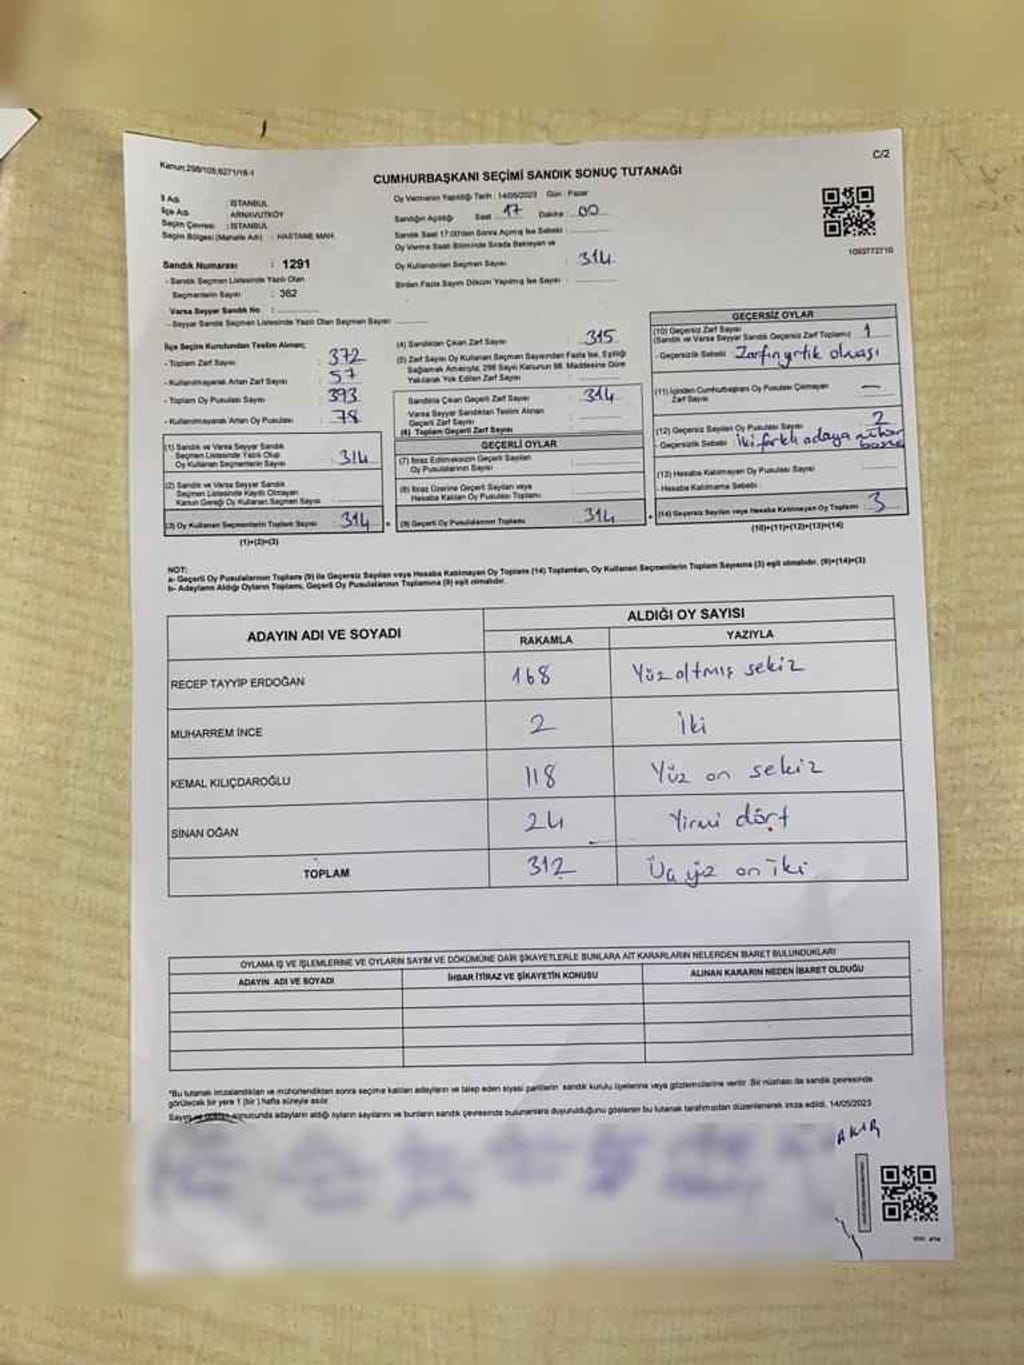 Kanun:298/105,6271/18-1
C/2
CUMHURBAŞKANI SEÇİMİ SANDIK SONUÇ TUTANAĞI
İl Adı : İSTANBUL
İlçe Adı : ARNAVUTKÖY
Seçim Çevresi : İSTANBUL
Seçim Bölgesi (Mahalle Adı) : HASTANE MAH.
Sandık Numarası : 1291
- Sandık Seçmen Listesinde Yazılı Olan
Seçmenlerin Sayısı : 362
Varsa Seyyar Sandık No :
- Seyyar Sandık Seçmen Listesinde Yazılı Olan Seçmen Sayısı :
Oy Vermenin Yapıldığı Tarih : 14/05/2023 Gün : Pazar
Sandığın Açıldığı Saat 17 Dakika 00
Sandık Saat 17:00'den Sonra Açılmış İse Sebebi :
Oy Verme Saati Bitiminde Sırada Bekleyen ve
Oy Kullandırılan Seçmen Sayısı : 314
Birden Fazla Sayım Döküm Yapılmış İse Sayısı :
1093772710
İlçe Seçim Kurulundan Teslim Alınan;
- Toplam Zarf Sayısı : 372
- Kullanılmayarak Artan Zarf Sayısı : 57
- Toplam Oy Pusulası Sayısı : 393
- Kullanılmayarak Artan Oy Pusulası : 78
(1) Sandık ve Varsa Seyyar Sandık
Seçmen Listesinde Yazılı Olup
Oy Kullanan Seçmenlerin Sayısı : 314
(2) Sandık ve Varsa Seyyar Sandık
Seçmen Listesinde Kayıtlı Olmayan
Kanun Gereği Oy Kullanan Seçmen Sayısı :
(3) Oy Kullanan Seçmenlerin Toplam Sayısı : 314
(1)+(2)=(3)
(4) Sandıktan Çıkan Zarf Sayısı : 315
(5) Zarf Sayısı Oy Kullanan Seçmen Sayısından Fazla İse, Eşitliği
Sağlamak Amacıyla, 298 Sayılı Kanunun 98. Maddesine Göre
Yakılarak Yok Edilen Zarf Sayısı :
Sandıkta Çıkan Geçerli Zarf Sayısı : 314
Varsa Seyyar Sandıktan Teslim Alınan
Geçerli Zarf Sayısı :
(6) Toplam Geçerli Zarf Sayısı :
GEÇERLİ OYLAR
(7) İtiraz Edilmeksizin Geçerli Sayılan
Oy Pusulalarının Sayısı :
(8) İtiraz Üzerine Geçerli Sayılan veya
Hesaba Katılan Oy Pusulası Toplamı :
(9) Geçerli Oy Pusulalarının Toplamı : 314
GEÇERSİZ OYLAR
(10) Geçersiz Zarf Sayısı
(Sandık ve Varsa Seyyar Sandık Geçersiz Zarf Toplamı) : 1
- Geçersizlik Sebebi : Zarfın yırtık olması
(11) İçinden Cumhurbaşkanı Oy Pusulası Çıkmayan
Zarf Sayısı : —
(12) Geçersiz Sayılan Oy Pusulası Sayısı : 2
- Geçersizlik Sebebi : İki farklı adaya mühür
(13) Hesaba Katılmayan Oy Pusulası Sayısı :
- Hesaba Katılmama Sebebi :
(14) Geçersiz Sayılan veya Hesaba Katılmayan Oy Toplamı : 3
(10)+(11)+(12)+(13)=(14)
NOT:
a- Geçerli Oy Pusulalarının Toplamı (9) ile Geçersiz Sayılan veya Hesaba Katılmayan Oy Toplamı (14) Toplamları, Oy Kullanan Seçmenlerin Toplam Sayısına (3) eşit olmalıdır. (9)+(14)=(3)
b- Adayların Aldığı Oyların Toplamı, Geçerli Oy Pusulalarının Toplamına (9) eşit olmalıdır.
ADAYIN ADI VE SOYADI
ALDIĞI OY SAYISI
RAKAMLA YAZIYLA
RECEP TAYYİP ERDOĞAN 168 Yüz altmış sekiz
MUHARREM İNCE 2 İki
KEMAL KILIÇDAROĞLU 118 Yüz on sekiz
SİNAN OĞAN 24 Yirmi dört
TOPLAM 312 Üç yüz on iki
OYLAMA İŞ VE İŞLEMLERİNE VE OYLARIN SAYIM VE DÖKÜMÜNE DAİR ŞİKAYETLERLE BUNLARA AİT KARARLARIN NELERDEN İBARET BULUNDUKLARI
ADAYIN ADI VE SOYADI İHBAR İTİRAZ VE ŞİKAYETİN KONUSU ALINAN KARARIN NEDEN İBARET OLDUĞU
*Bu tutanak imzalandıktan ve mühürlendikten sonra seçime katılan adayların ve talep eden siyasi partilerin sandık kurulu üyelerine veya gözlemcilerine verilir. Bir nüshası da sandık çevresinde
görülecek bir yere 1 (bir) hafta süreyle asılır.
Sayım ve döküm sonucunda adayların aldığı oyların sayılarını ve bunların sandık çevresinde bulunanlara duyurulduğunu gösteren bu tutanak tarafımızdan düzenlenerek imza edildi. 14/05/2023